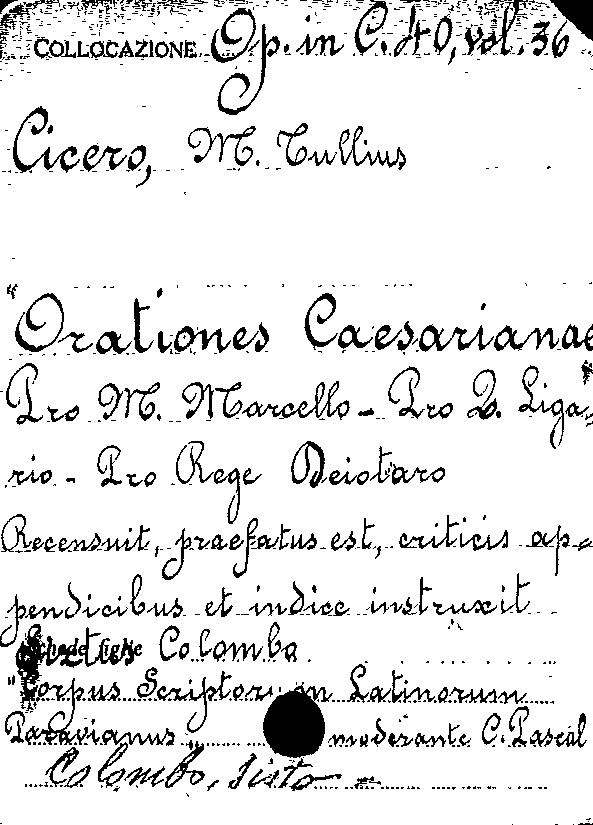 COLLOCAZIONE Op. in C. 40, vol. 36
Cicero, M. Tullius
"Orationes Caesarianae"
Pro M. Marcello - Pro Q. Liga-
rio - Pro Rege Deiotaro
Recensuit, praefatus est, criticis ap-
pendicibus et indice instruxit
Sixtus Colombo
"Corpus Scriptorum Latinorum
Paravianus" moderante C. Pascal
Colombo, Sisto -